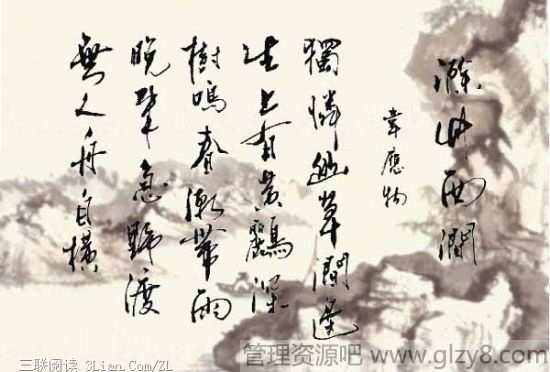 滁州西澗
韋應物
獨憐幽草澗邊
生上有黄鸝深
樹鳴春潮帶雨
晚來急野渡
無人舟自橫
管理资源吧 www.glzy8.com
三联阅读 3Lian.Com/ZL